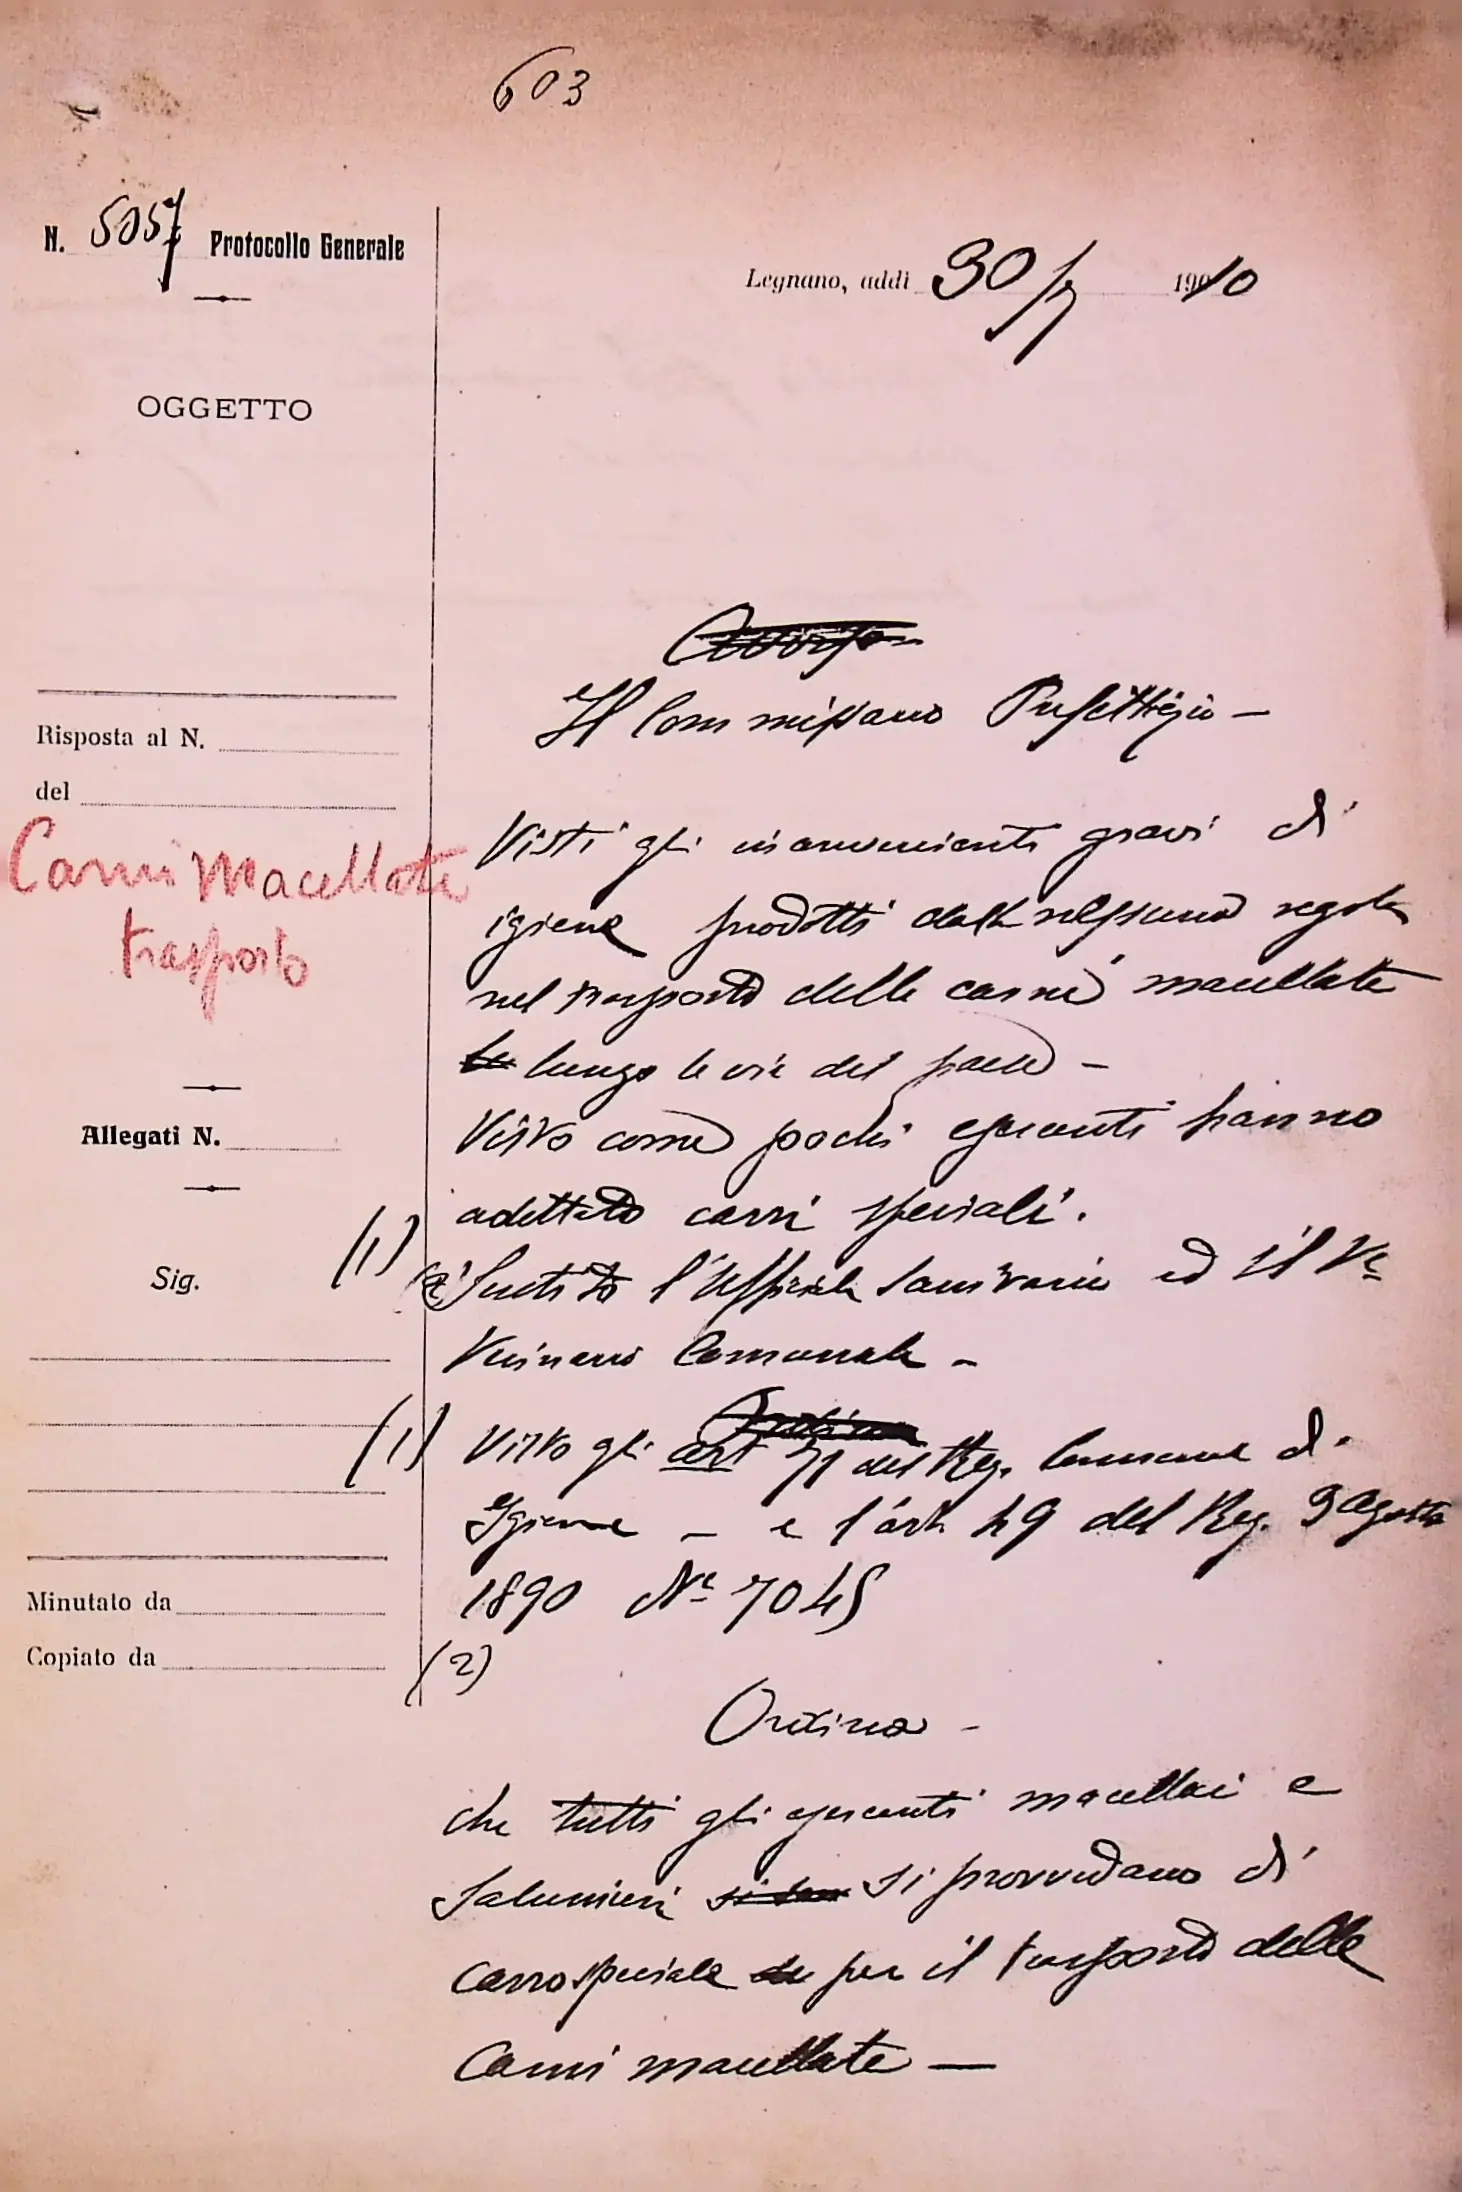 603
N. 5057 Protocollo Generale
Legnano, addì 30/7 1910
OGGETTO
Risposta al N.
del
Carni Macellate
trasporto
Allegati N.
Sig.
Minutato da
Copiato da
Il Commissario Prefettizio –
Visti gli inconvenienti gravi di
igiene prodotti dalla nessuna regola
nel trasporto delle carni macellate
le lungo le vie del paese –
Visto come pochi esercenti hanno
adottato carri speciali.
(1) (2) Sentito l'Ufficiale Sanitario ed il Ve
terinario Comunale –
Ordina
(1) Visto gli art 71 del Reg. Comunale di
Igiene – e l'art. 49 del Reg. 3 Agosto
1890 N° 7045
(2)
Ordina –
che tutti gli esercenti macellai e
Salumieri si provvedano di
carro speciale de per il trasporto delle
Carni macellate —